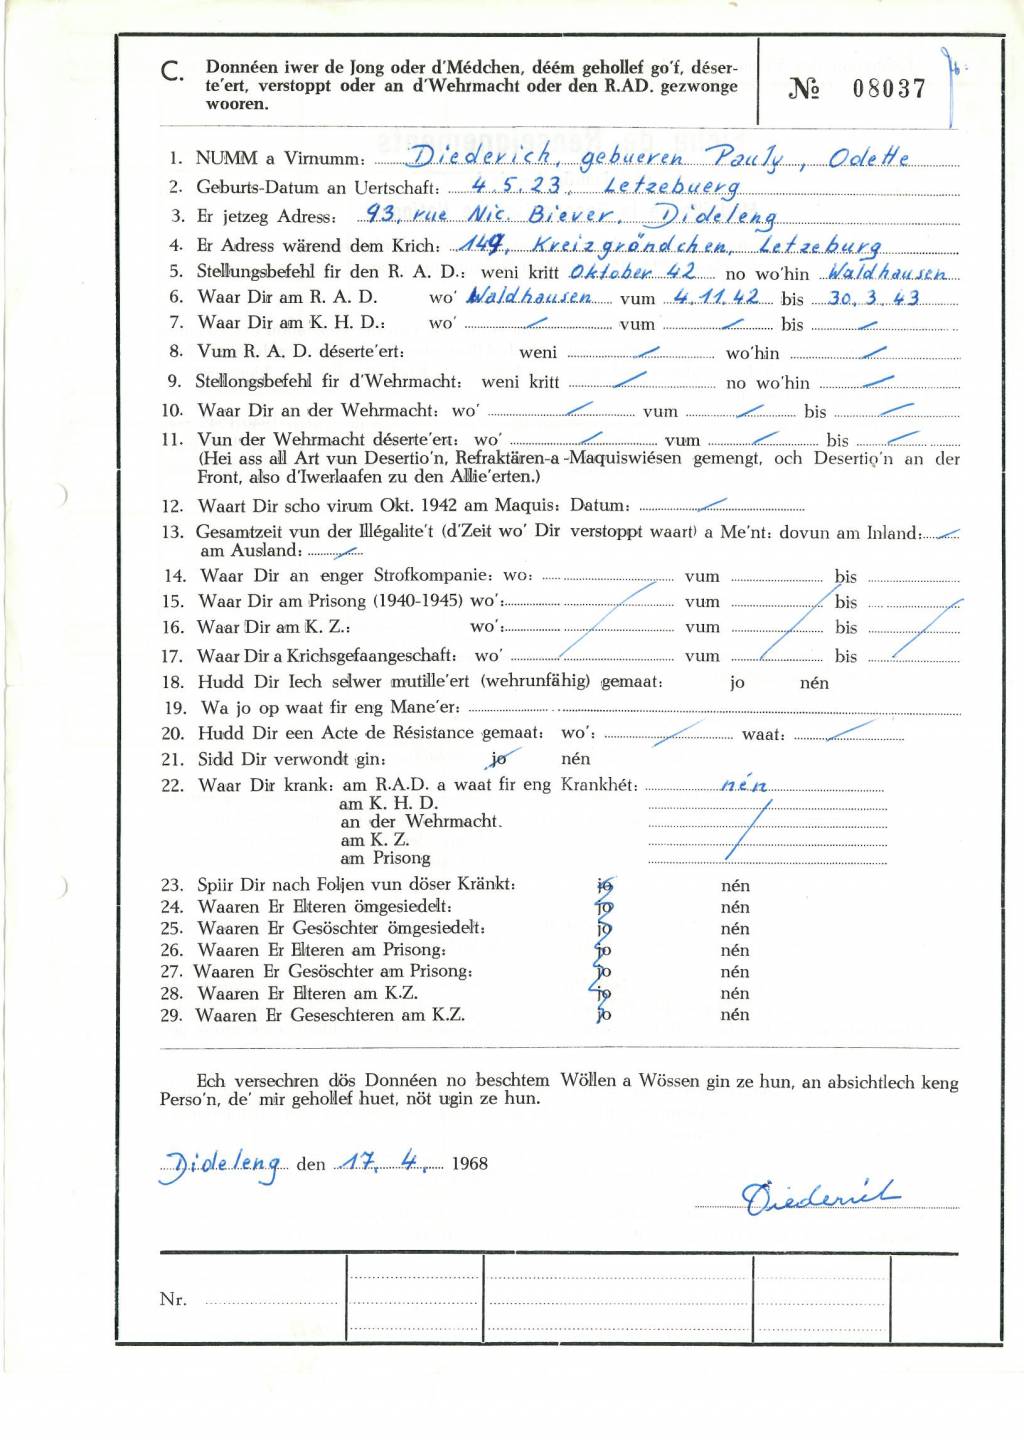 C. Donnéen iwer de Jong oder d'Médchen, déém gehollef go'f, déser-
te'ert, verstoppt oder an d'Wehrmacht oder den R.AD. gezwonge
wooren.
№ 08037
1. NUMM a Virnumm: Diederich, gebueren Pauly, Odette
2. Geburts-Datum an Uertschaft: 4.5.23, Letzebuerg
3. Er jetzeg Adress: 93, rue Nic. Biever. Dideleng
4. Er Adress wärend dem Krich: 149, Kreizgröndchen, Letzeburg
5. Stellungsbefehl fir den R. A. D.: weni kritt Oktober 42 no wo'hin Waldhausen
6. Waar Dir am R. A. D. wo' Waldhausen vum 4.11.42 bis 30.3.43
7. Waar Dir am K. H. D.: wo' vum bis
8. Vum R. A. D. déserte'ert: weni wo'hin
9. Stellongsbefehl fir d'Wehrmacht: weni kritt no wo'hin
10. Waar Dir an der Wehrmacht: wo' vum bis
11. Vun der Wehrmacht déserte'ert: wo' vum bis
(Hei ass all Art vun Desertio'n, Refraktären-a-Maquiswiésen gemengt, och Desertio'n an der
Front, also d'Iwerlaafen zu den Allie'erten.)
12. Waart Dir scho virum Okt. 1942 am Maquis: Datum:
13. Gesamtzeit vun der Illégalite't (d'Zeit wo' Dir verstoppt waart) a Me'nt: dovun am Inland:
am Ausland:
14. Waar Dir an enger Strofkompanie: wo: vum bis
15. Waar Dir am Prisong (1940-1945) wo': vum bis
16. Waar Dir am K. Z.: wo': vum bis
17. Waar Dir a Krichsgefaangeschaft: wo' vum bis
18. Hudd Dir Iech selwer mutille'ert (wehrunfähig) gemaat: jo nén
19. Wa jo op waat fir eng Mane'er:
20. Hudd Dir een Acte de Résistance gemaat: wo': waat:
21. Sidd Dir verwondt gin: jo nén
22. Waar Dir krank: am R.A.D. a waat fir eng Krankhét: nén
am K. H. D.
an der Wehrmacht.
am K. Z.
am Prisong
23. Spiir Dir nach Foljen vun döser Kränkt: jo nén
24. Waaren Er Elteren ömgesiedelt: jo nén
25. Waaren Er Gesöschter ömgesiedelt: jo nén
26. Waaren Er Elteren am Prisong: jo nén
27. Waaren Er Gesöschter am Prisong: jo nén
28. Waaren Er Elteren am K.Z. jo nén
29. Waaren Er Geseschteren am K.Z. jo nén
Ech versechren dös Donnéen no beschtem Wöllen a Wössen gin ze hun, an absichtlech keng
Perso'n, de' mir gehollef huet, nöt ugin ze hun.
Dideleng den 17. 4. 1968
Diederich
Nr.